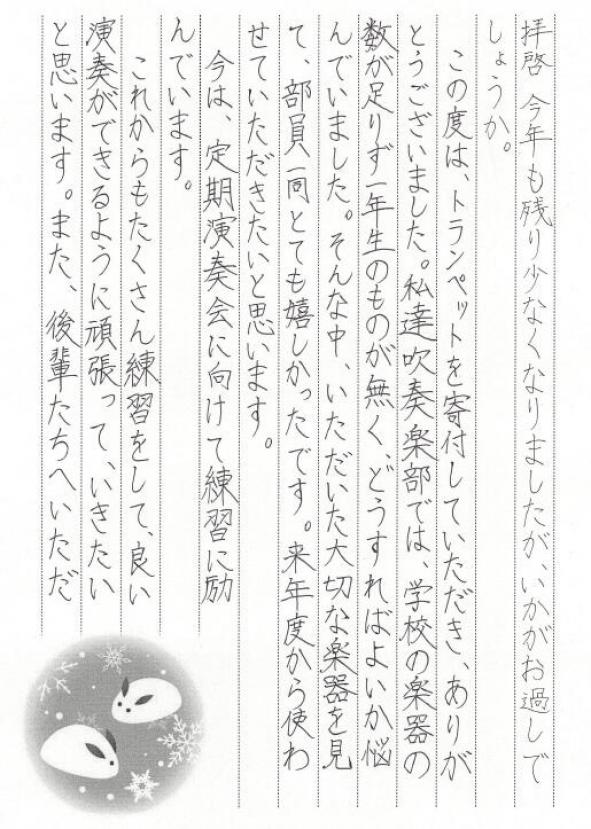 拝啓 今年も残り少なくなりましたが、いかがお過しで
しょうか。
この度は、トランペットを寄付していただき、ありが
とうございました。私達吹奏楽部では、学校の楽器の
数が足りず一年生のものが無く、どうすればよいか悩
んでいました。そんな中、いただいた大切な楽器を見
て、部員一同とても嬉しかったです。来年度から使わ
せていただきたいと思います。
今は、定期演奏会に向けて練習に励
んでいます。
これからもたくさん練習をして、良い
演奏ができるように頑張って、いきたい
と思います。また、後輩たちへいただ